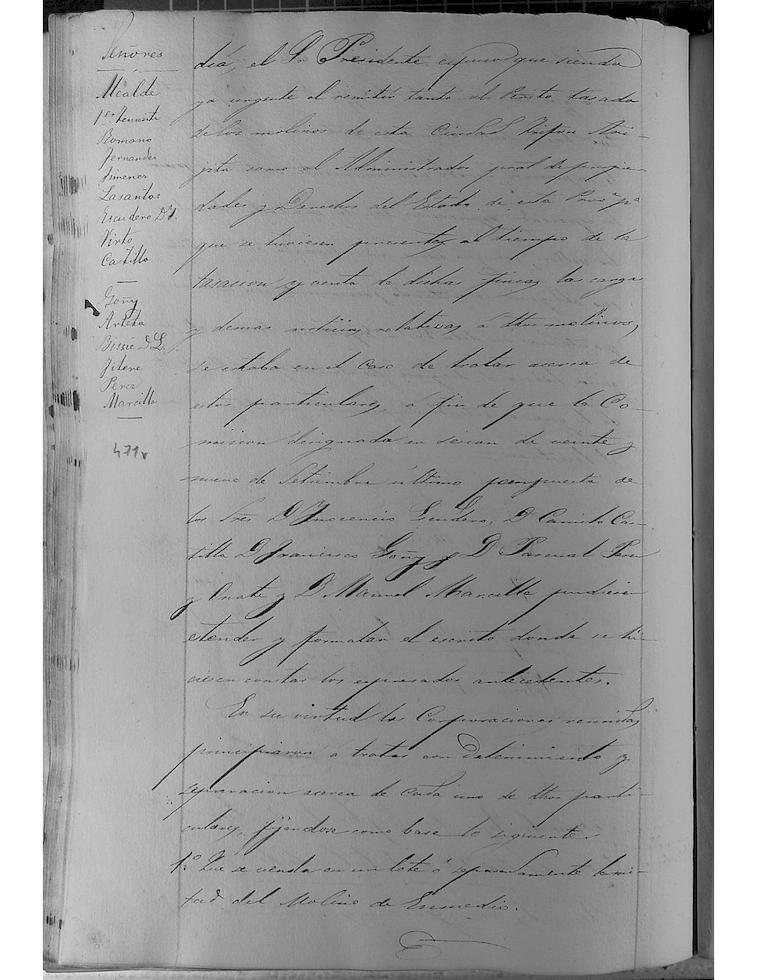 Señores
Alcalde
1er teniente
Romano
Fernandez
Jimenez
Lasantas
Escudero D. Y.
Virto
Castillo
Goñy
Arteta
D. L.
Perez
Marcilla
471v
dia, el Sr Presidente espuso que siendo
ya urgente el remitir tanto al Perito tasador
de los molinos de esta Ciudad
como al Administrador pral de propie-
dades y Derechos del Estado de esta Provª pª
que se tuviesen presentes al tiempo de la
tasacion y venta de dichas fincas las cargas
y demas noticias relativas á dhos molinos,
se estaba en el caso de tratar acerca de
estos particulares, á fin de que la Co-
mision designada en sesion de veinte y
nueve de Setiembre último compuesta de
los Sres D. Inocencio Escudero, D. Camilo Cas-
tillo D. Francisco Goñy y D. Pascual Perez
y Oñate y D. Manuel Marcilla pudiesen
estender y formalar el escrito donde se hi-
ciesen constar los espresados antecedentes.
En su virtud las Corporaciones reunidas
principiaron á tratar con detenimiento y
separacion acerca de cada uno de dhos parti-
culares, fijandose como base lo siguiente.
1º Que se venda en un lote ó separadamente la mi-
tad del Molino de Enmedio.